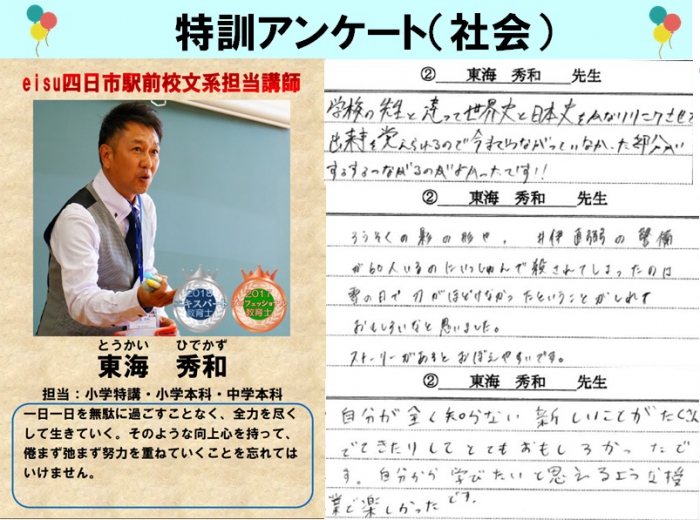 特訓アンケート(社会)
eisu四日市駅前校文系担当講師
2018
エキスパート
教育士
2017
プロフェッショナル
教育士
とうかい ひでかず
東海 秀和
担当:小学特講・小学本科・中学本科
一日一日を無駄に過ごすことなく、全力を尽く
して生きていく。そのような向上心を持って、
倦まず弛まず努力を重ねていくことを忘れては
いけません。
② 東海 秀和 先生
学校の先生と違って世界史と日本史を リンクさせて
出来事を覚えられるので今までつながっていなかった部分が
するするつながるのがよかったです!!
② 東海 秀和 先生
ろうそくの影の形や、井伊直弼の警備
が60人いるのにいっしゅんで殺されてしまったのは
雪の日で刀がほどけなかったということがしれて
おもしろいなと思いました。
ストーリーがあるとおぼえやすいです。
② 東海 秀和 先生
自分が全く知らない新しいことがたくさん
でてきたりしてとてもおもしろかったで
す。自分から学びたいと思えるような授
業で楽しかったです。